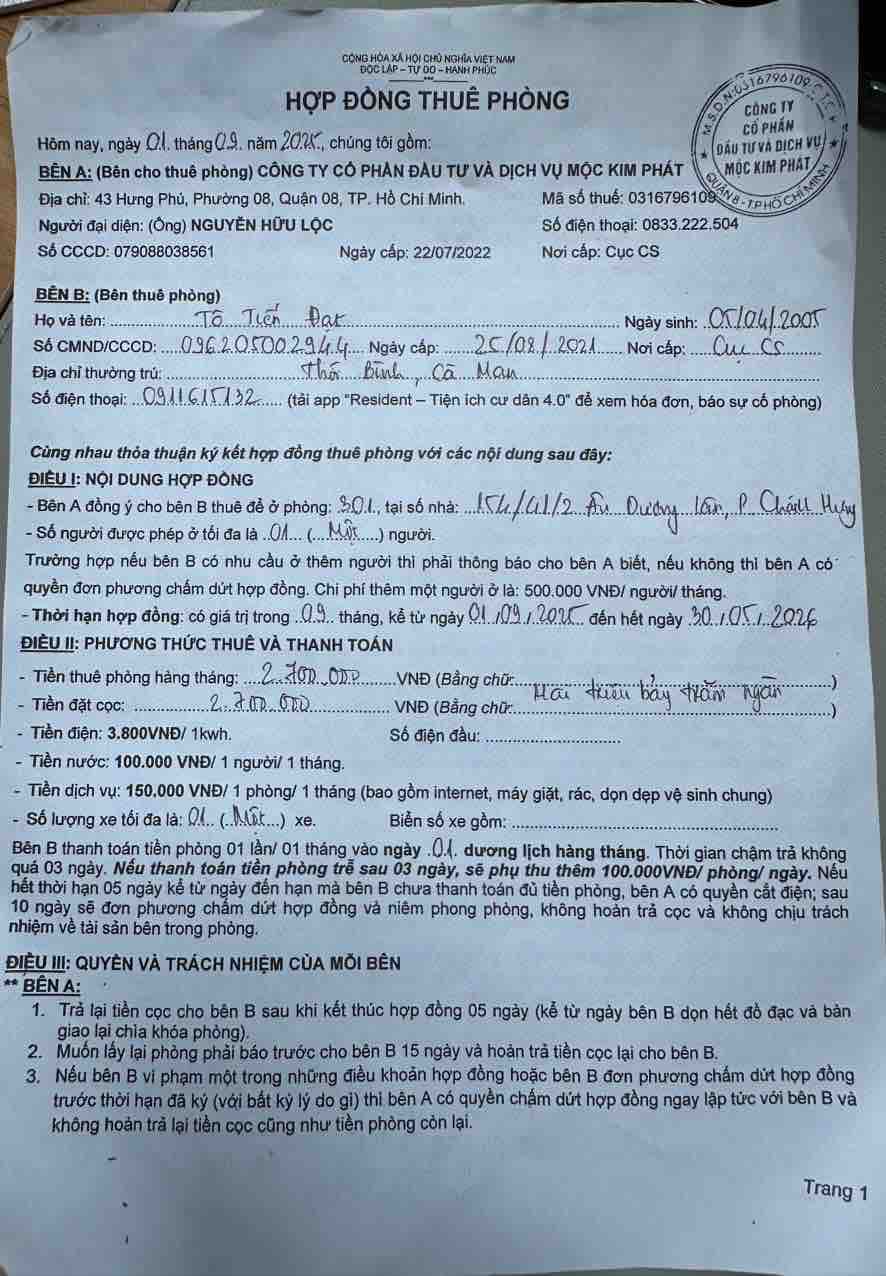 CỘNG HÒA XÃ HỘI CHỦ NGHĨA VIỆT NAM
ĐỘC LẬP – TỰ DO – HẠNH PHÚC
HỢP ĐỒNG THUÊ PHÒNG
M.S.D.N:0316796109-C.T.C.P
CÔNG TY
CỔ PHẦN
ĐẦU TƯ VÀ DỊCH VỤ
MỘC KIM PHÁT
QUẬN 8 - T.P HỒ CHÍ MINH
Hôm nay, ngày 01. tháng 09. năm 2025., chúng tôi gồm:
BÊN A: (Bên cho thuê phòng) CÔNG TY CỔ PHẦN ĐẦU TƯ VÀ DỊCH VỤ MỘC KIM PHÁT
Địa chỉ: 43 Hưng Phú, Phường 08, Quận 08, TP. Hồ Chí Minh. Mã số thuế: 0316796109
Người đại diện: (Ông) NGUYỄN HỮU LỘC Số điện thoại: 0833.222.504
Số CCCD: 079088038561 Ngày cấp: 22/07/2022 Nơi cấp: Cục CS
BÊN B: (Bên thuê phòng)
Họ và tên: Tô Tiến Đạt Ngày sinh: 05/04/2005
Số CMND/CCCD: 096205002944 Ngày cấp: 25/08/2021 Nơi cấp: Cục CS
Địa chỉ thường trú: Thới Bình, Cà Mau
Số điện thoại: 0911615132 (tải app "Resident – Tiện ích cư dân 4.0" để xem hóa đơn, báo sự cố phòng)
Cùng nhau thỏa thuận ký kết hợp đồng thuê phòng với các nội dung sau đây:
ĐIỀU I: NỘI DUNG HỢP ĐỒNG
- Bên A đồng ý cho bên B thuê để ở phòng: 301, tại số nhà: 154/41/2 Âu Dương Lân, P. Chánh Hưng
- Số người được phép ở tối đa là 01 (Một) người.
Trường hợp nếu bên B có nhu cầu ở thêm người thì phải thông báo cho bên A biết, nếu không thì bên A có
quyền đơn phương chấm dứt hợp đồng. Chi phí thêm một người ở là: 500.000 VNĐ/ người/ tháng.
- Thời hạn hợp đồng: có giá trị trong 09 tháng, kể từ ngày 01/09/2025 đến hết ngày 30/05/2026
ĐIỀU II: PHƯƠNG THỨC THUÊ VÀ THANH TOÁN
- Tiền thuê phòng hàng tháng: 2.700.000 VNĐ (Bằng chữ: )
Hai triệu bảy trăm ngàn
- Tiền đặt cọc: 2.700.000 VNĐ (Bằng chữ: )
- Tiền điện: 3.800VNĐ/ 1kwh. Số điện đầu:
- Tiền nước: 100.000 VNĐ/ 1 người/ 1 tháng.
- Tiền dịch vụ: 150.000 VNĐ/ 1 phòng/ 1 tháng (bao gồm internet, máy giặt, rác, dọn dẹp vệ sinh chung)
- Số lượng xe tối đa là: 01 (Một) xe. Biển số xe gồm:
Bên B thanh toán tiền phòng 01 lần/ 01 tháng vào ngày 01. dương lịch hàng tháng. Thời gian chậm trả không
quá 03 ngày. Nếu thanh toán tiền phòng trễ sau 03 ngày, sẽ phụ thu thêm 100.000VNĐ/ phòng/ ngày. Nếu
hết thời hạn 05 ngày kể từ ngày đến hạn mà bên B chưa thanh toán đủ tiền phòng, bên A có quyền cắt điện; sau
10 ngày sẽ đơn phương chấm dứt hợp đồng và niêm phong phòng, không hoàn trả cọc và không chịu trách
nhiệm về tài sản bên trong phòng.
ĐIỀU III: QUYỀN VÀ TRÁCH NHIỆM CỦA MỖI BÊN
** BÊN A:
1. Trả lại tiền cọc cho bên B sau khi kết thúc hợp đồng 05 ngày (kể từ ngày bên B dọn hết đồ đạc và bàn
giao lại chìa khóa phòng).
2. Muốn lấy lại phòng phải báo trước cho bên B 15 ngày và hoàn trả tiền cọc lại cho bên B.
3. Nếu bên B vi phạm một trong những điều khoản hợp đồng hoặc bên B đơn phương chấm dứt hợp đồng
trước thời hạn đã ký (với bất kỳ lý do gì) thì bên A có quyền chấm dứt hợp đồng ngay lập tức với bên B và
không hoàn trả lại tiền cọc cũng như tiền phòng còn lại.
Trang 1